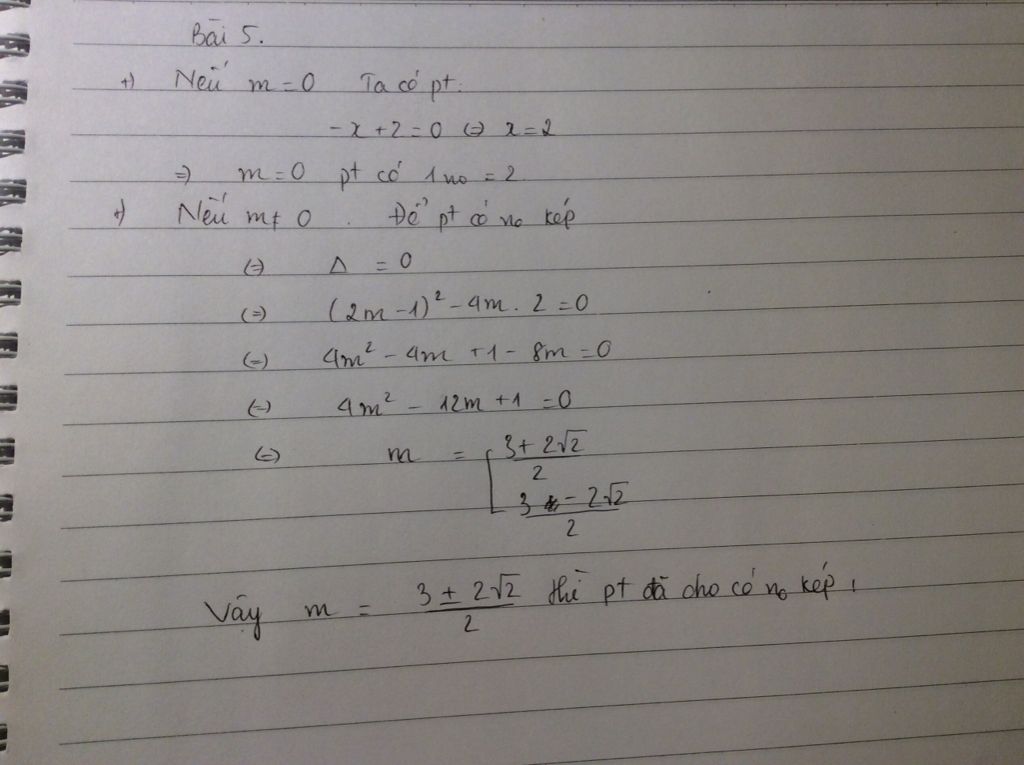 Bài 5.
+) Nếu m = 0 Ta có pt:
-x + 2 = 0 (=) x = 2
=) m = 0 pt có 1 no = 2
+) Nếu m ≠ 0. Để pt có no kép
(=) Δ = 0
(=) (2m - 1)² - 4m . 2 = 0
(=) 4m² - 4m + 1 - 8m = 0
(=) 4m² - 12m + 1 = 0
(=) m = [ (3 + 2√2)/2
(3 - 2√2)/2
Vậy m = (3 ± 2√2)/2 thì pt đã cho có no kép.